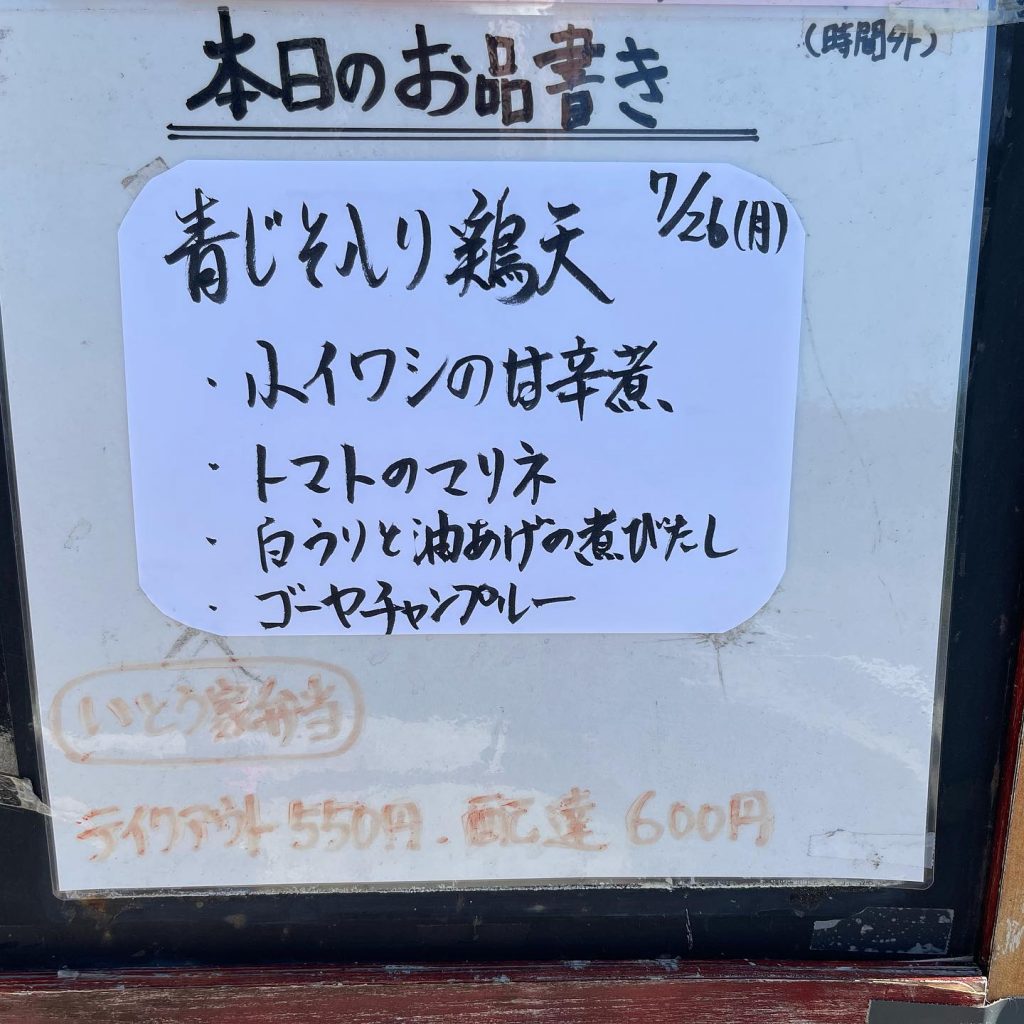 (時間外)
本日のお品書き
7/26(月)
青じそ入り鶏天
・小イワシの甘辛煮、
・トマトのマリネ
・白うりと油あげの煮びたし
・ゴーヤチャンプルー
いとう家弁当
テイクアウト550円.配達 600円